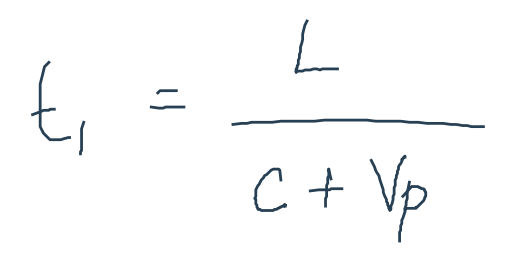 t₁ = L / (C + Vp)